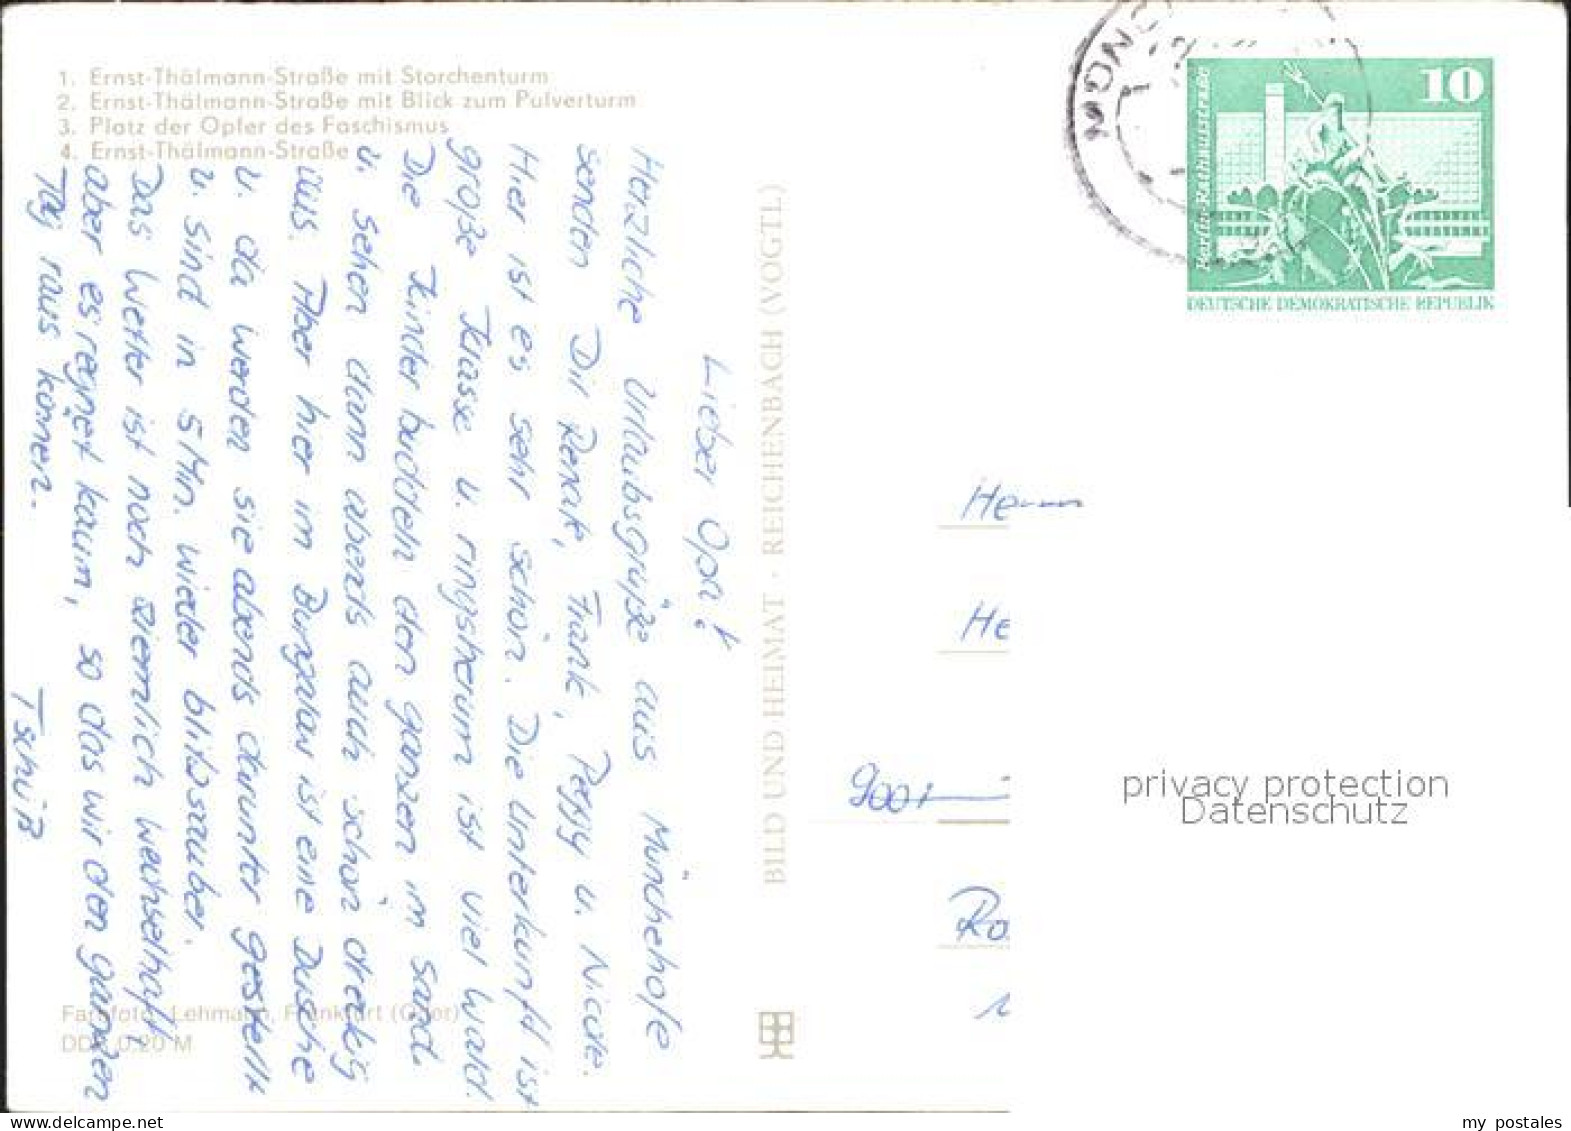 1. Ernst-Thälmann-Straße mit Storchenturm
2. Ernst-Thälmann-Straße mit Blick zum Pulverturm
3. Platz der Opfer des Faschismus
4. Ernst-Thälmann-Straße
Lieber Opa!
Herzliche Urlaubsgrüße aus Münchehofe
senden Dir Renate, Frank, Peggy u. Nicole.
Hier ist es sehr schön. Die Unterkunft ist
große Klasse u. ringsherum ist viel Wald.
Die Kinder buddeln den ganzen im Sand.
u. sehen dann abends auch schön dreckig
aus. Aber hier im Bungalow ist eine Dusche
u. da werden sie abends darunter gestellt
u. sind in 5 Min. wieder blitzsauber.
Das Wetter ist noch ziemlich wechselhaft
aber es regnet kaum, so das wir den ganzen
Tag raus können.
Tschüß
Farbfoto: Lehmann, Frankfurt (Oder)
DDR 0,20 M
BILD UND HEIMAT · REICHENBACH (VOGTL)
10
Berlin-Rathausstraße
DEUTSCHE DEMOKRATISCHE REPUBLIK
Herrn
He
9001
Ro
privacy protection
Datenschutz
my_postales